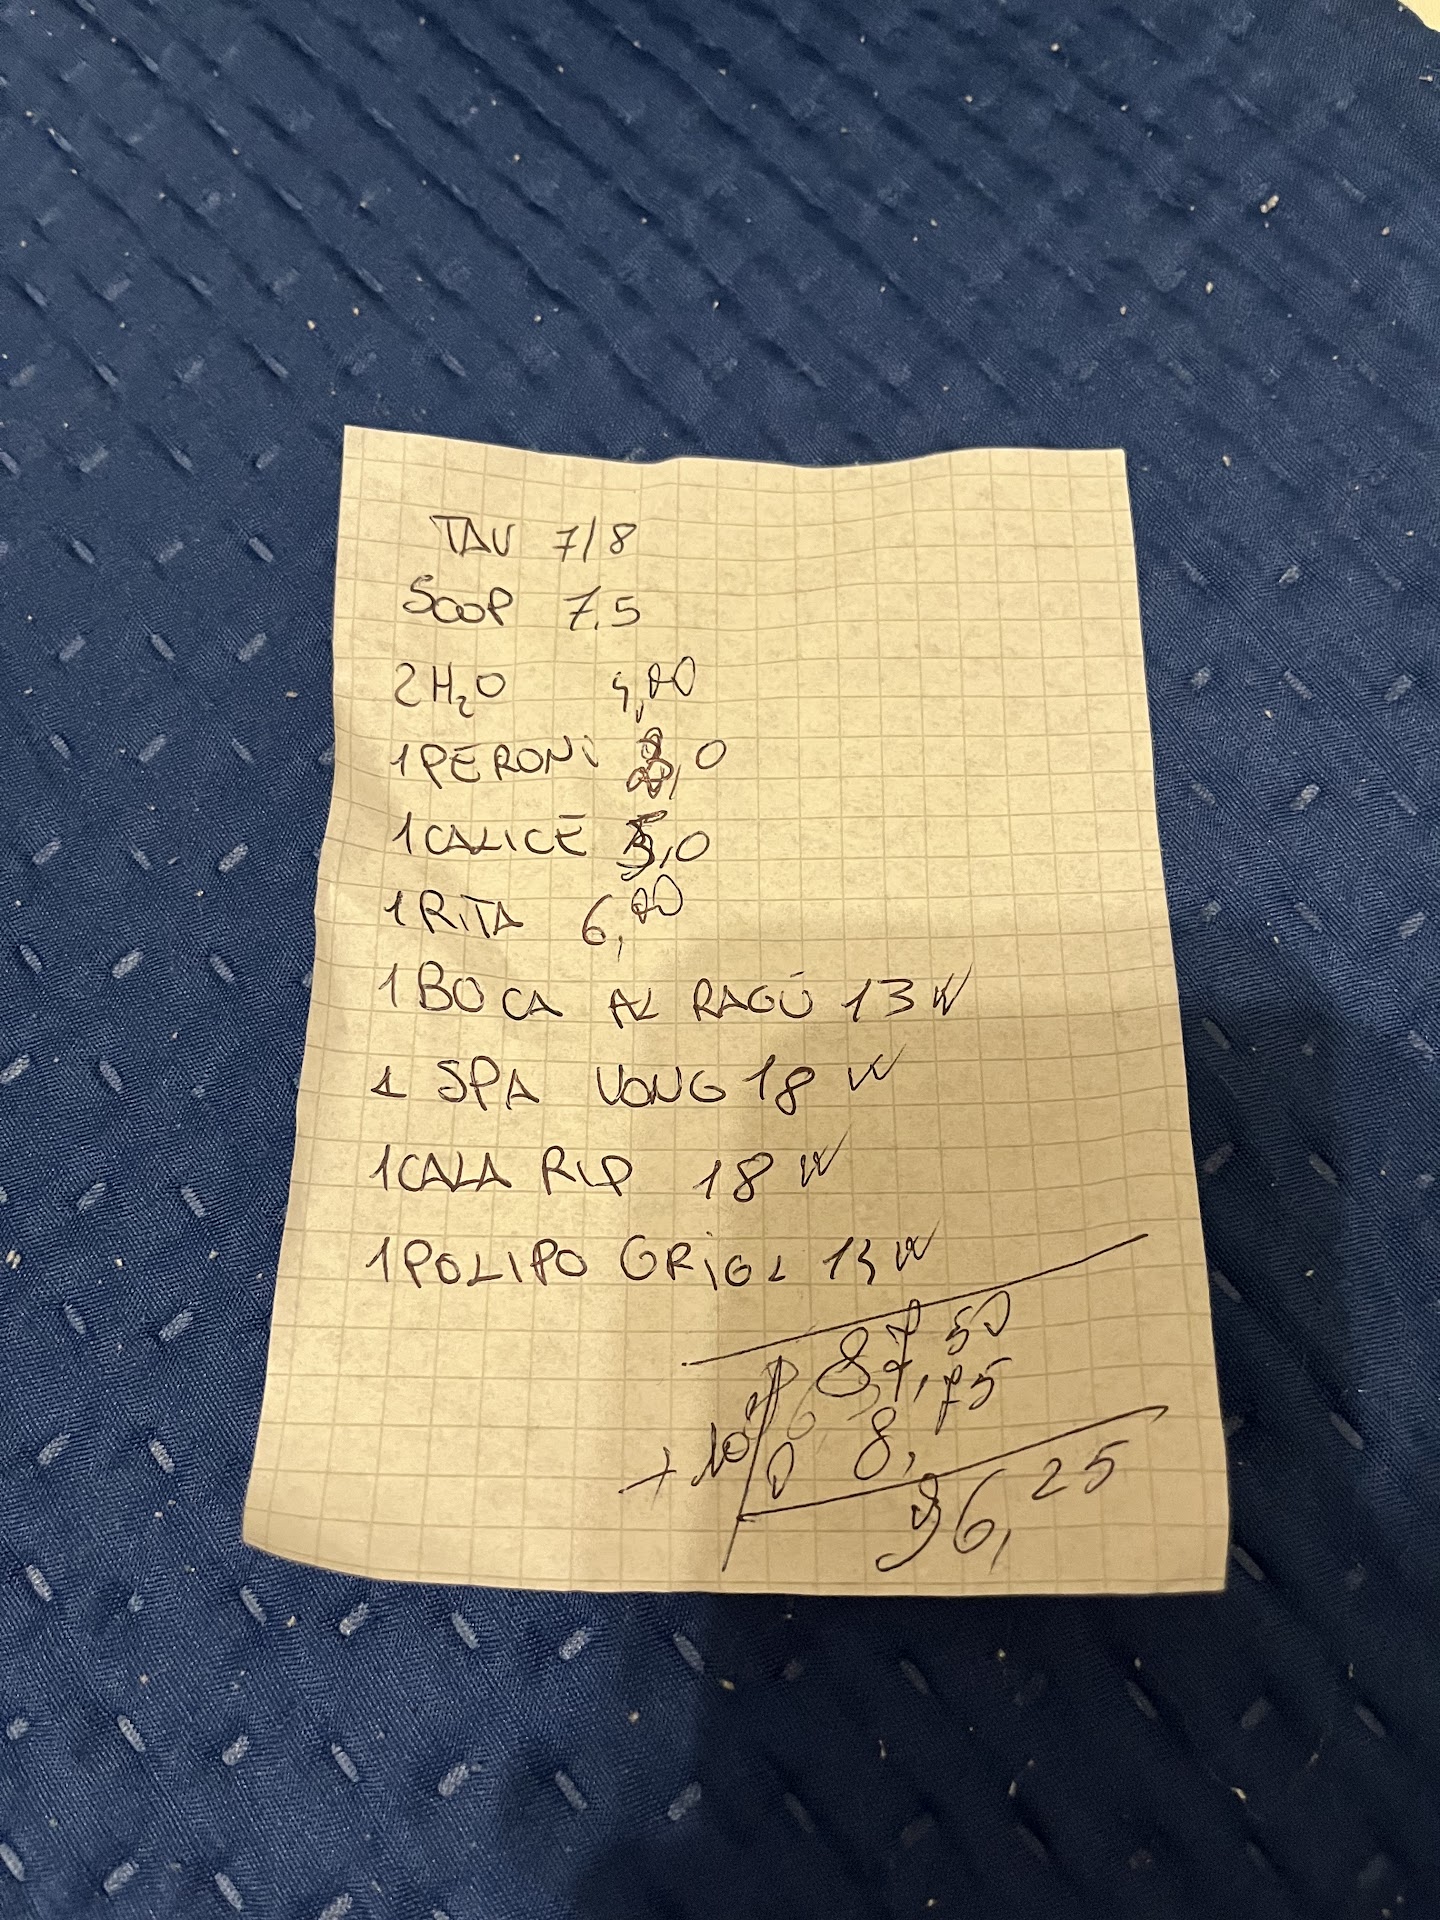 TAV 7/8
SCOP 7.5
2 H₂O 4,00
1 PERONI 3,0
1 CALICE 5,0
1 RITA 6,00
1 BOCA AL RAGÙ 13
1 SPA VONG 18
1 CALA RIP 18
1 POLIPO GRIGL 13
87,50
+ 10% 8,75
96,25